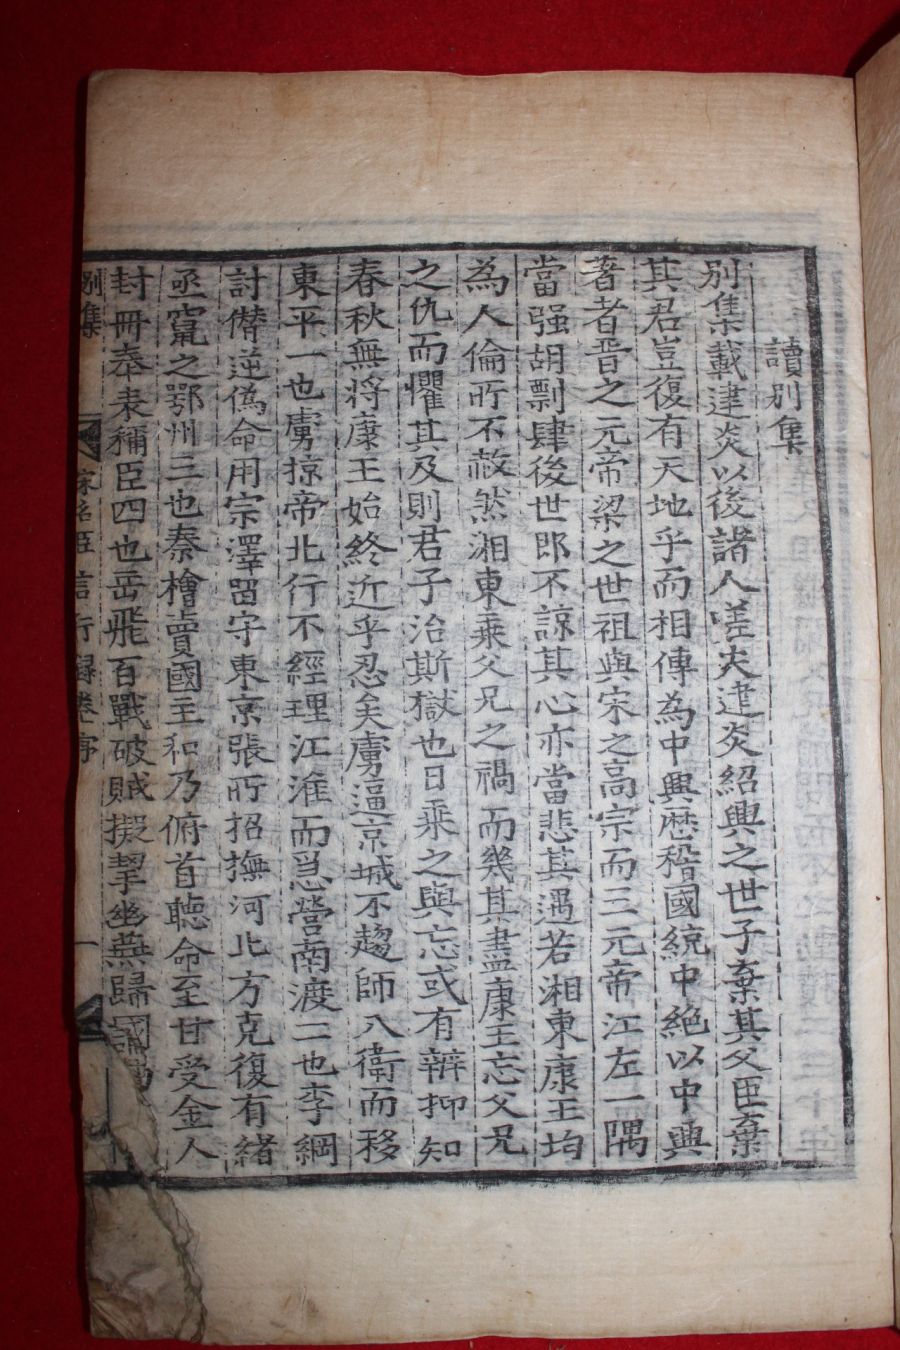 讀别集
别集載建炎以後諸人嗟夫建炎紹興之世子棄其父臣棄
其君豈復有天地乎而相傳為中興歷稽國統中絶以中興
著者晋之元帝梁之世祖與宋之高宗而三元帝江左一隅
當强胡剽肆後世即不諒其心亦當悲其遇若湘東康王均
為人倫所不赦然湘東乗父兄之禍而幾其盡康王忘父兄
之仇而懼其及則君子治斯獄也曰乗之與忘或有辨抑知
春秋無將康王始終近乎忍矣虜逼京城不趨師入衛而移
東平一也虜掠帝北行不經理江淮而急營南渡二也李綱
討僣逆偽命用宗澤留守東京張所招撫河北方克復有緒
亟竄之鄂州三也秦檜賣國主和乃俯首聴命至甘受金人
封冊奉表稱臣四也岳飛百戰破賊擬挈幽燕歸國
别集 宋名臣言行録卷序 一